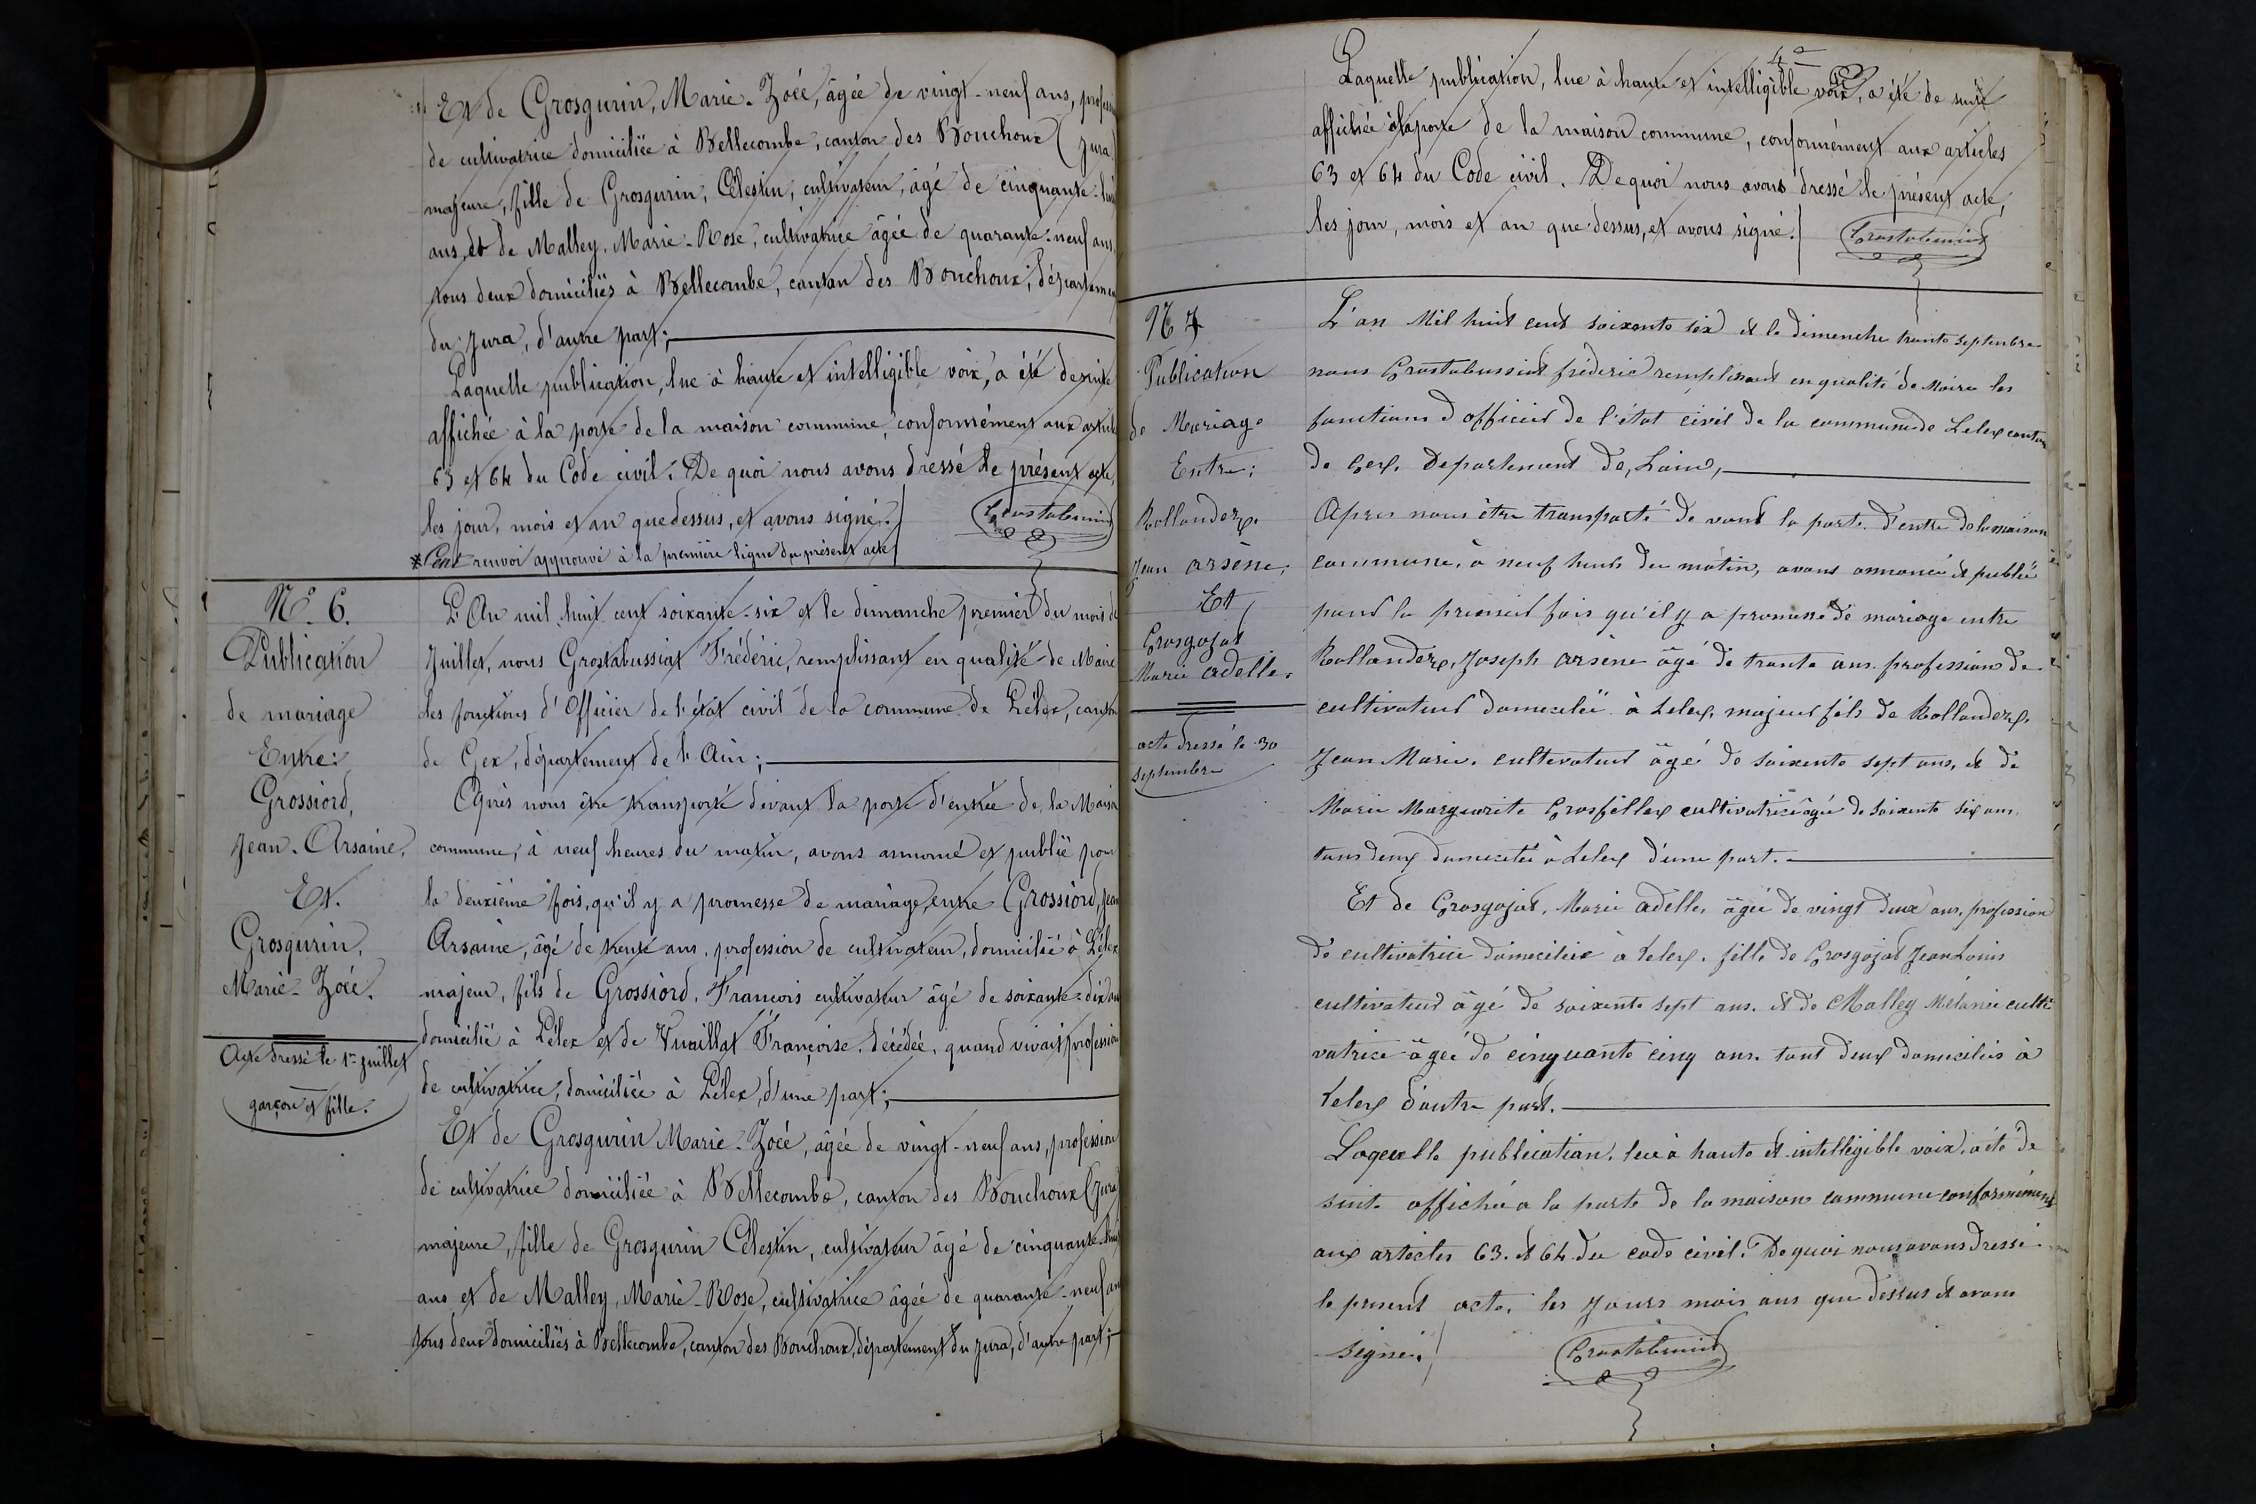 Et de Grosgurin, Marie-Zoéé, âgée de vingt-neuf ans, profession
de cultivatrice domiciliée à Bellecombe, canton des Bouchoux (Jura)
majeure, fille de Grosgurin, Célestin, cultivateur, âgé de cinquante-huit
ans, et de Malley, Marie-Rose, cultivatrice âgée de quarante-neuf ans,
tous deux domiciliés à Bellecombe, canton des Bouchoux, département
du Jura, d'autre part;
Laquelle publication, lue à haute et intelligible voix, a été de suite
affichée à la porte de la maison commune, conformément aux articles
63 et 64 du Code civil. De quoi nous avons dressé le présent acte,
les jour, mois et an que dessus, et avons signé.
Grostabussiat
* renvoi approuvé à la première ligne du présent acte
N° 6.
Publication
de mariage
Entre:
Grossiord,
Jean-Arsaine,
Et.
Grosgurin,
Marie-Zoéé.
Acte dressé le 1er Juillet
garçon et fille.
L'An mil huit cent soixante-six et le dimanche premier du mois de
Juillet, nous Grostabussiat Frédéric, remplissant en qualité de Maire
les fonctions d'Officier de l'état civil de la commune de Lélex, canton
de Gex, département de l'Ain;
Après nous être transporté devant la porte d'entrée de la Maison
commune, à neuf heures du matin, avons annoncé et publié pour
la deuxième fois, qu'il y a promesse de mariage, entre Grossiord, Jean
Arsaine, âgé de trente ans, profession de cultivateur, domicilié à Lélex
majeur, fils de Grossiord, Francois cultivateur âgé de soixante-dix ans
domicilié à Lélex et de Vuaillat Françoise, décédée, quand vivait profession
de cultivatrice, domiciliée à Lélex, d'une part;
Et de Grosgurin Marie-Zoéé, âgée de vingt-neuf ans, profession
de cultivatrice domiciliée à Bellecombe, canton des Bouchoux (Jura)
majeure, fille de Grosgurin Célestin, cultivateur âgé de cinquante-huit
ans et de Malley, Marie-Rose, cultivatrice âgée de quarante-neuf ans
tous deux domiciliés à Bellecombe, canton des Bouchoux, département du Jura, d'autre part;
Laquelle publication, lue à haute et intelligible voix, a été de suite
affichée à la porte de la maison commune, conformément aux articles
63 et 64 du Code civil. De quoi nous avons dressé le présent acte,
les jour, mois et an que dessus, et avons signé.
Grostabussiat
N° 7
Publication
de Mariage
Entre:
Rollandez,
Jean arsène,
Et
Grosgojat
Marie adelle.
acte dressé le 30
septembre
L'an Mil huit cent soixante six et le dimenche trente septembre
nous Grostabussiat fréderic remplissant en qualité de Maire les
fonctions d'officier de l'état civil de la commune de Lelex canton
de Gex. Departement de, Lain,
Apres nous être transporté de vant la porte d'entre de la maison
commune, à neuf heurs du matin, avons annoncé et publié
pour la premier fois qu'il y a promesse de mariage entre
Rollandez, Joseph arsène âgé de trente ans. profession de
cultivateur domecilié à Lelex, majeur fils de Rollandez,
Jean Marie. cultevateur âgé de soixente sept ans, et de
Marie Marguerite Grosfillex cultivatrice âgée de soixente six ans
tous deux domecilié à Lelex d'une part.
Et de Grosgojat, Marie adelle, âgée de vingt deux ans, profession
de cultivatrice domeciliée à Lelex, fille de Grosgojat Jean Louis
cultivateur âgé de soixente sept ans. et de Malley Mélanie culti
vatrice âgée de cinquante cinq ans. tout deux domeciliés à
Lelex d'autre part.
Laquelle publication, lue à haute et intelligible voix, a été de
suite affichée a la porte de la maison commune conformément
aux articles 63. et 64 du code civil. De quoi nous avons dressé
le present acte, les jours mois ans que dessus et avons
signé.
Grostabussiat